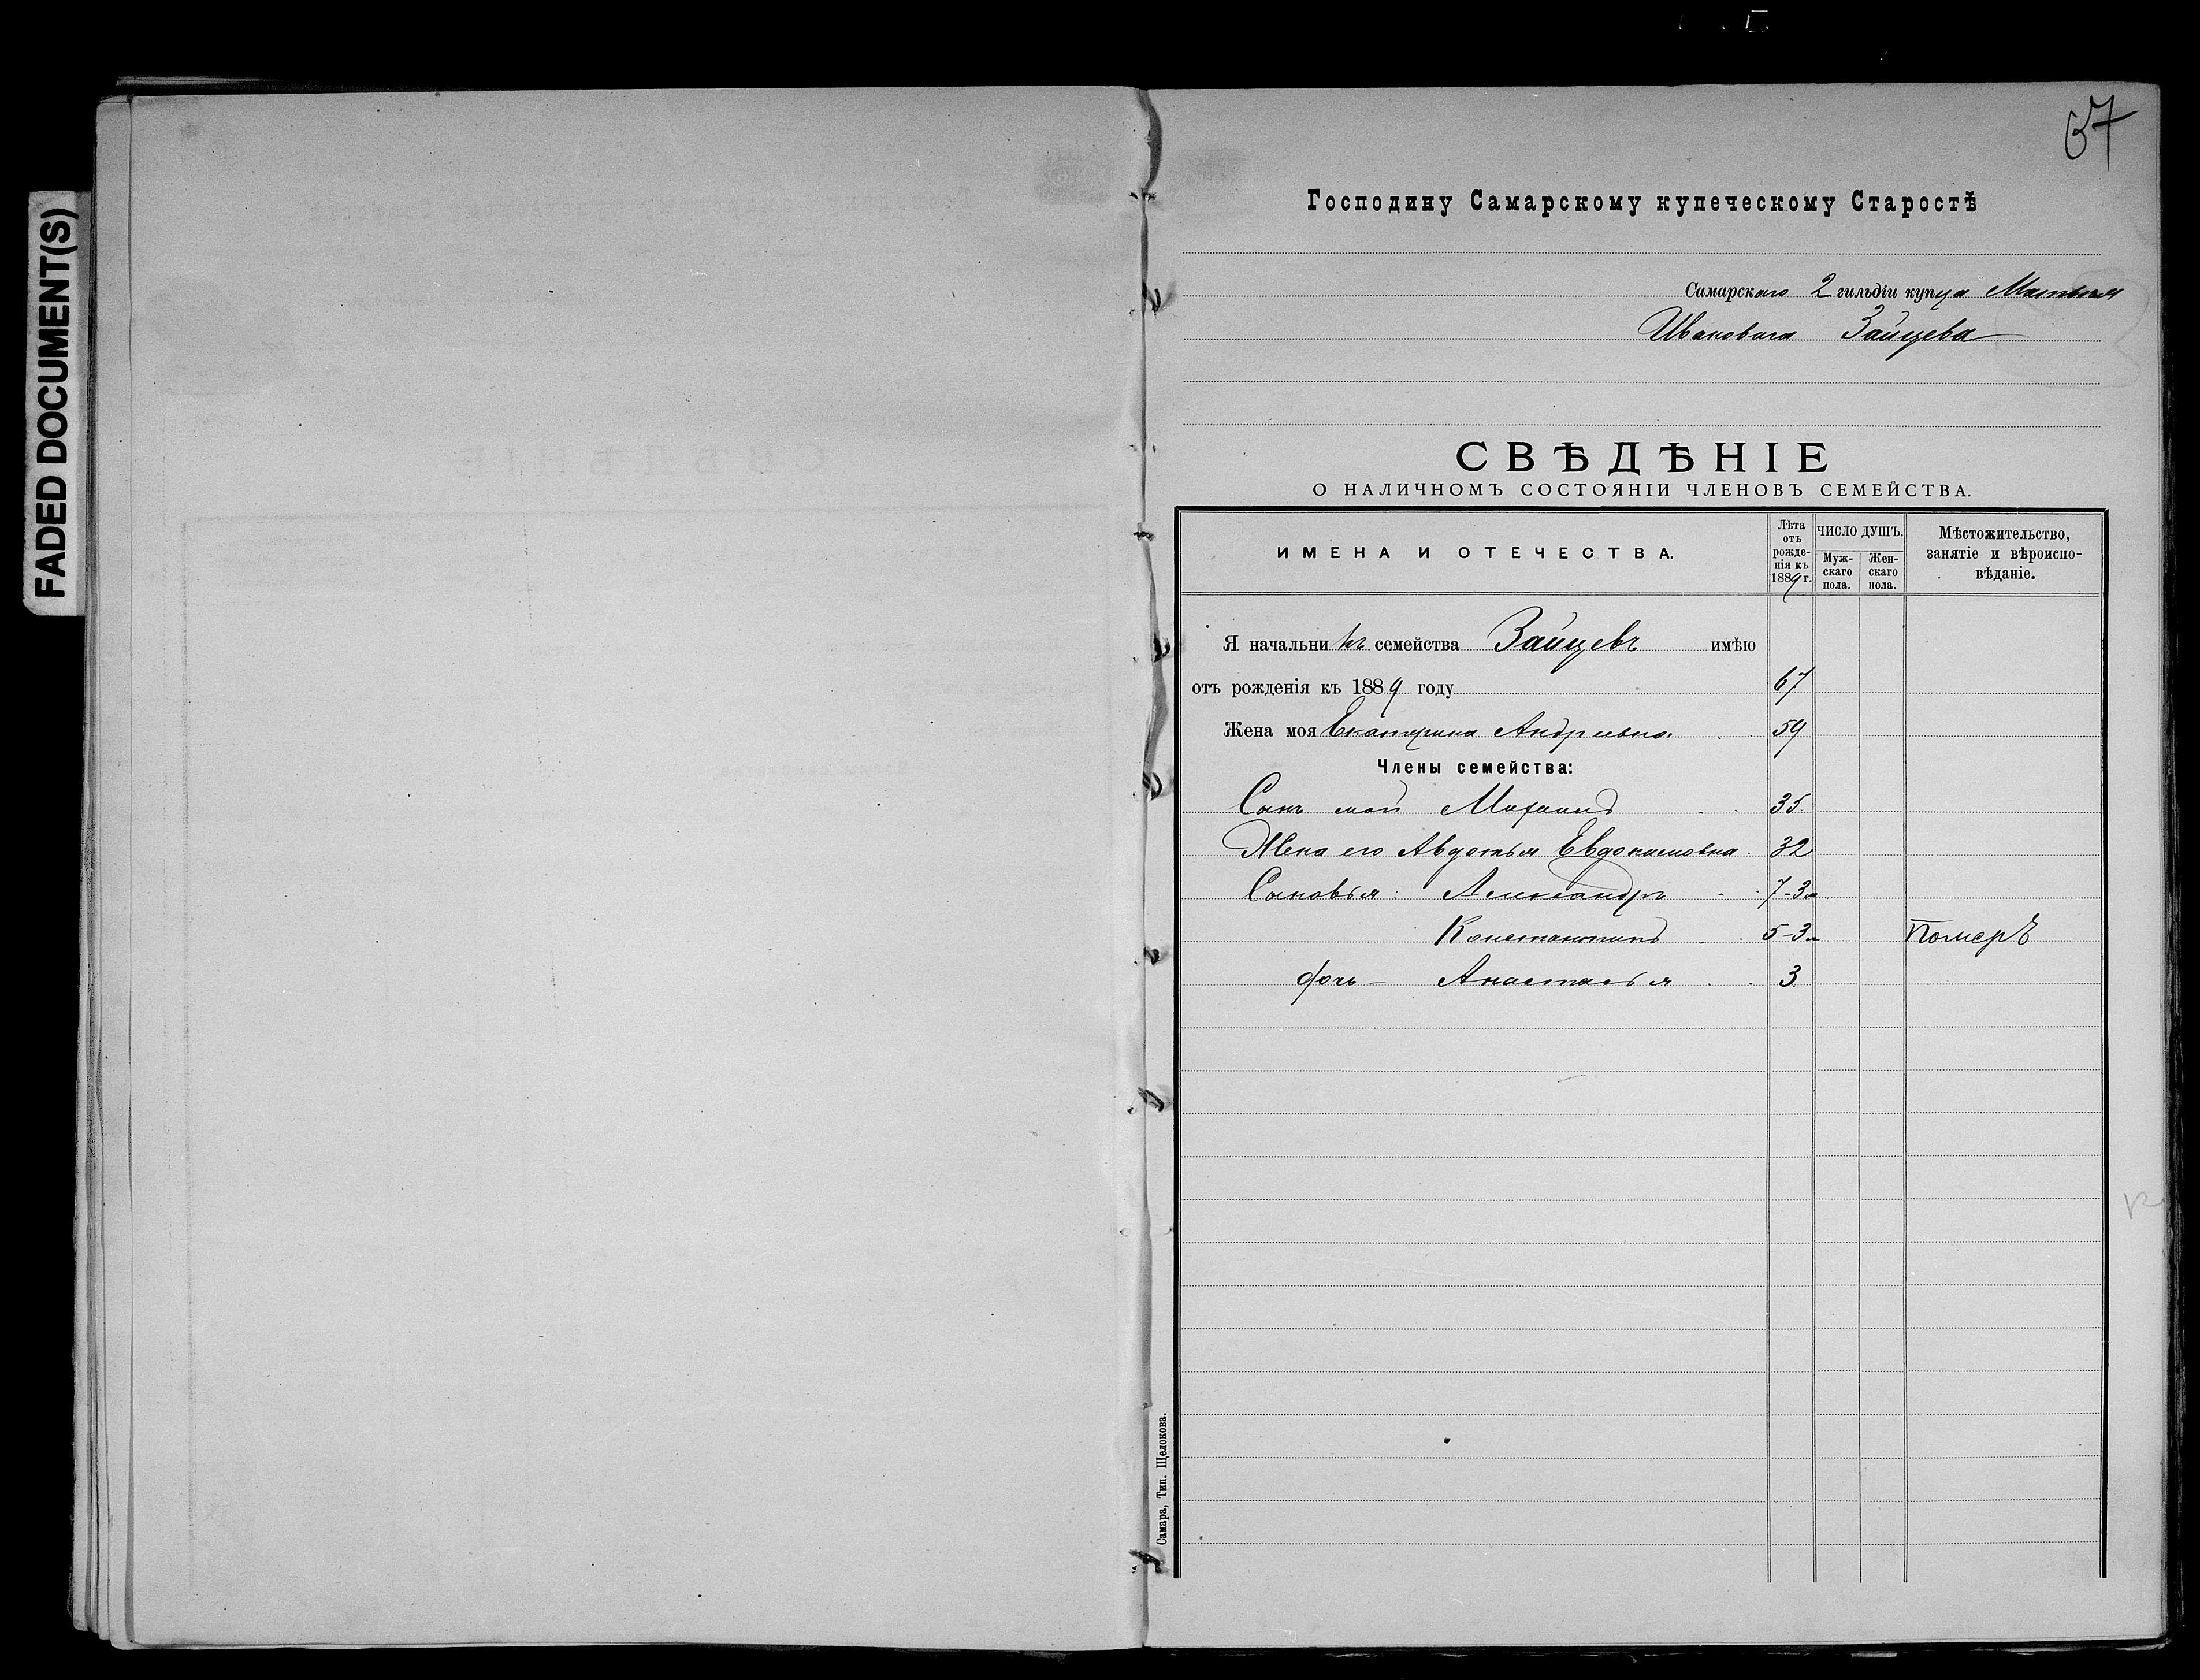 FADED DOCUMENT(S)
67
Господину Самарскому купеческому Старостѣ
Самарскаго 2 гильдіи купца Матвея
Ивановича Зайцева
СВѢДѢНІЕ
О НАЛИЧНОМЪ СОСТОЯНІИ ЧЛЕНОВЪ СЕМЕЙСТВА.
ИМЕНА И ОТЕЧЕСТВА.
Лѣта
отъ
рожде-
нія къ
1889 г.
ЧИСЛО ДУШЪ.
Муж-
скаго
пола.
Жен-
скаго
пола.
Мѣстожительство,
занятіе и вѣроиспо-
вѣданіе.
Я начальникъ семейства Зайцевъ имѣю
отъ рожденія къ 1889 году 67
Жена моя Екатерина Андреевна 59
Члены семейства:
Сынъ мой Михаилъ 35
Жена его Авдотья Евдокимовна 32
Сыновья: Александръ 7-3м
Константинъ 5-3м Померъ
дочь - Анастасья 3
Самара, Тип. Щелокова.